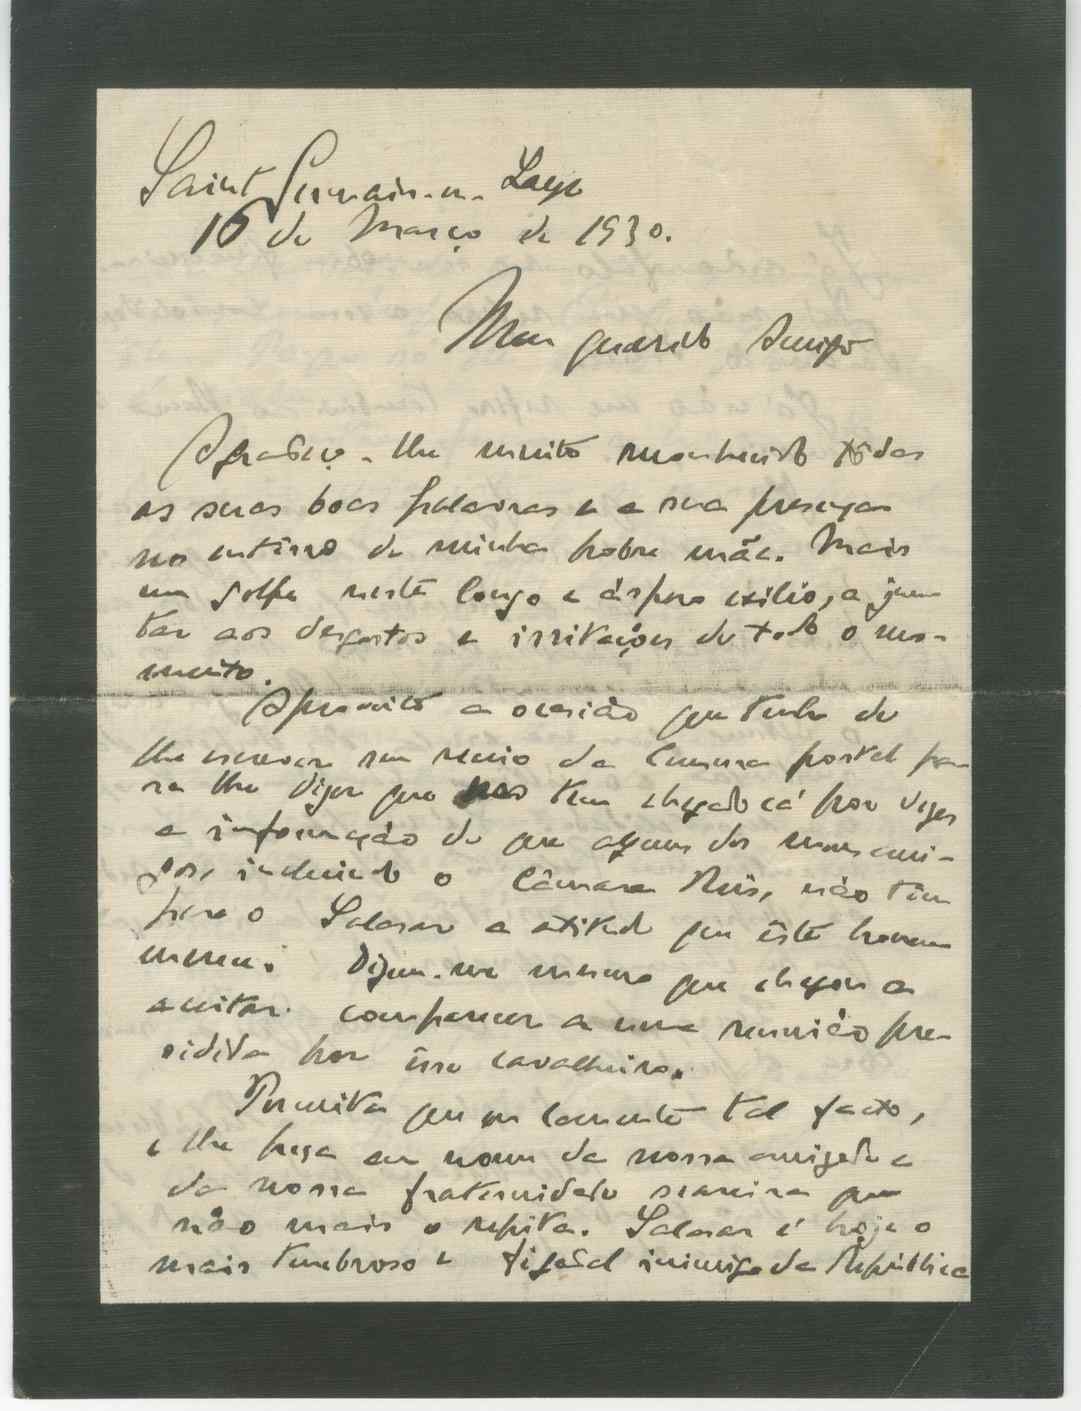 Saint Germain-en-Laye
16 de Março de 1930.
Meu querido Amigo
Agradeço-lhe muito reconhecido tôdas
as suas boas palavras e a sua presença
no entêrro de minha pobre mãe. Mais
um golpe neste longo e áspero exílio, a jun-
tar aos desgostos e irritações de todo o mo-
mento.
Aproveito a ocasião que tenho de
lhe escrever sem receio da censura postal pa-
ra lhe dizer que nos tem chegado cá por vezes
a informação de que alguns dos meus ami-
gos, incluindo o Câmara Reis, não têm
para o Salazar a atitude que êste homem
merece. Dizem-me mesmo que chegou a
aceitar comparecer a uma reunião pre-
sidida por êsse cavalheiro.
Permita que eu lamente tal facto,
e lhe peça em nome da nossa amizade e
da nossa fraternidade seareira que
não mais o repita. Salazar é hoje o
mais tenebroso e figadal inimigo da República